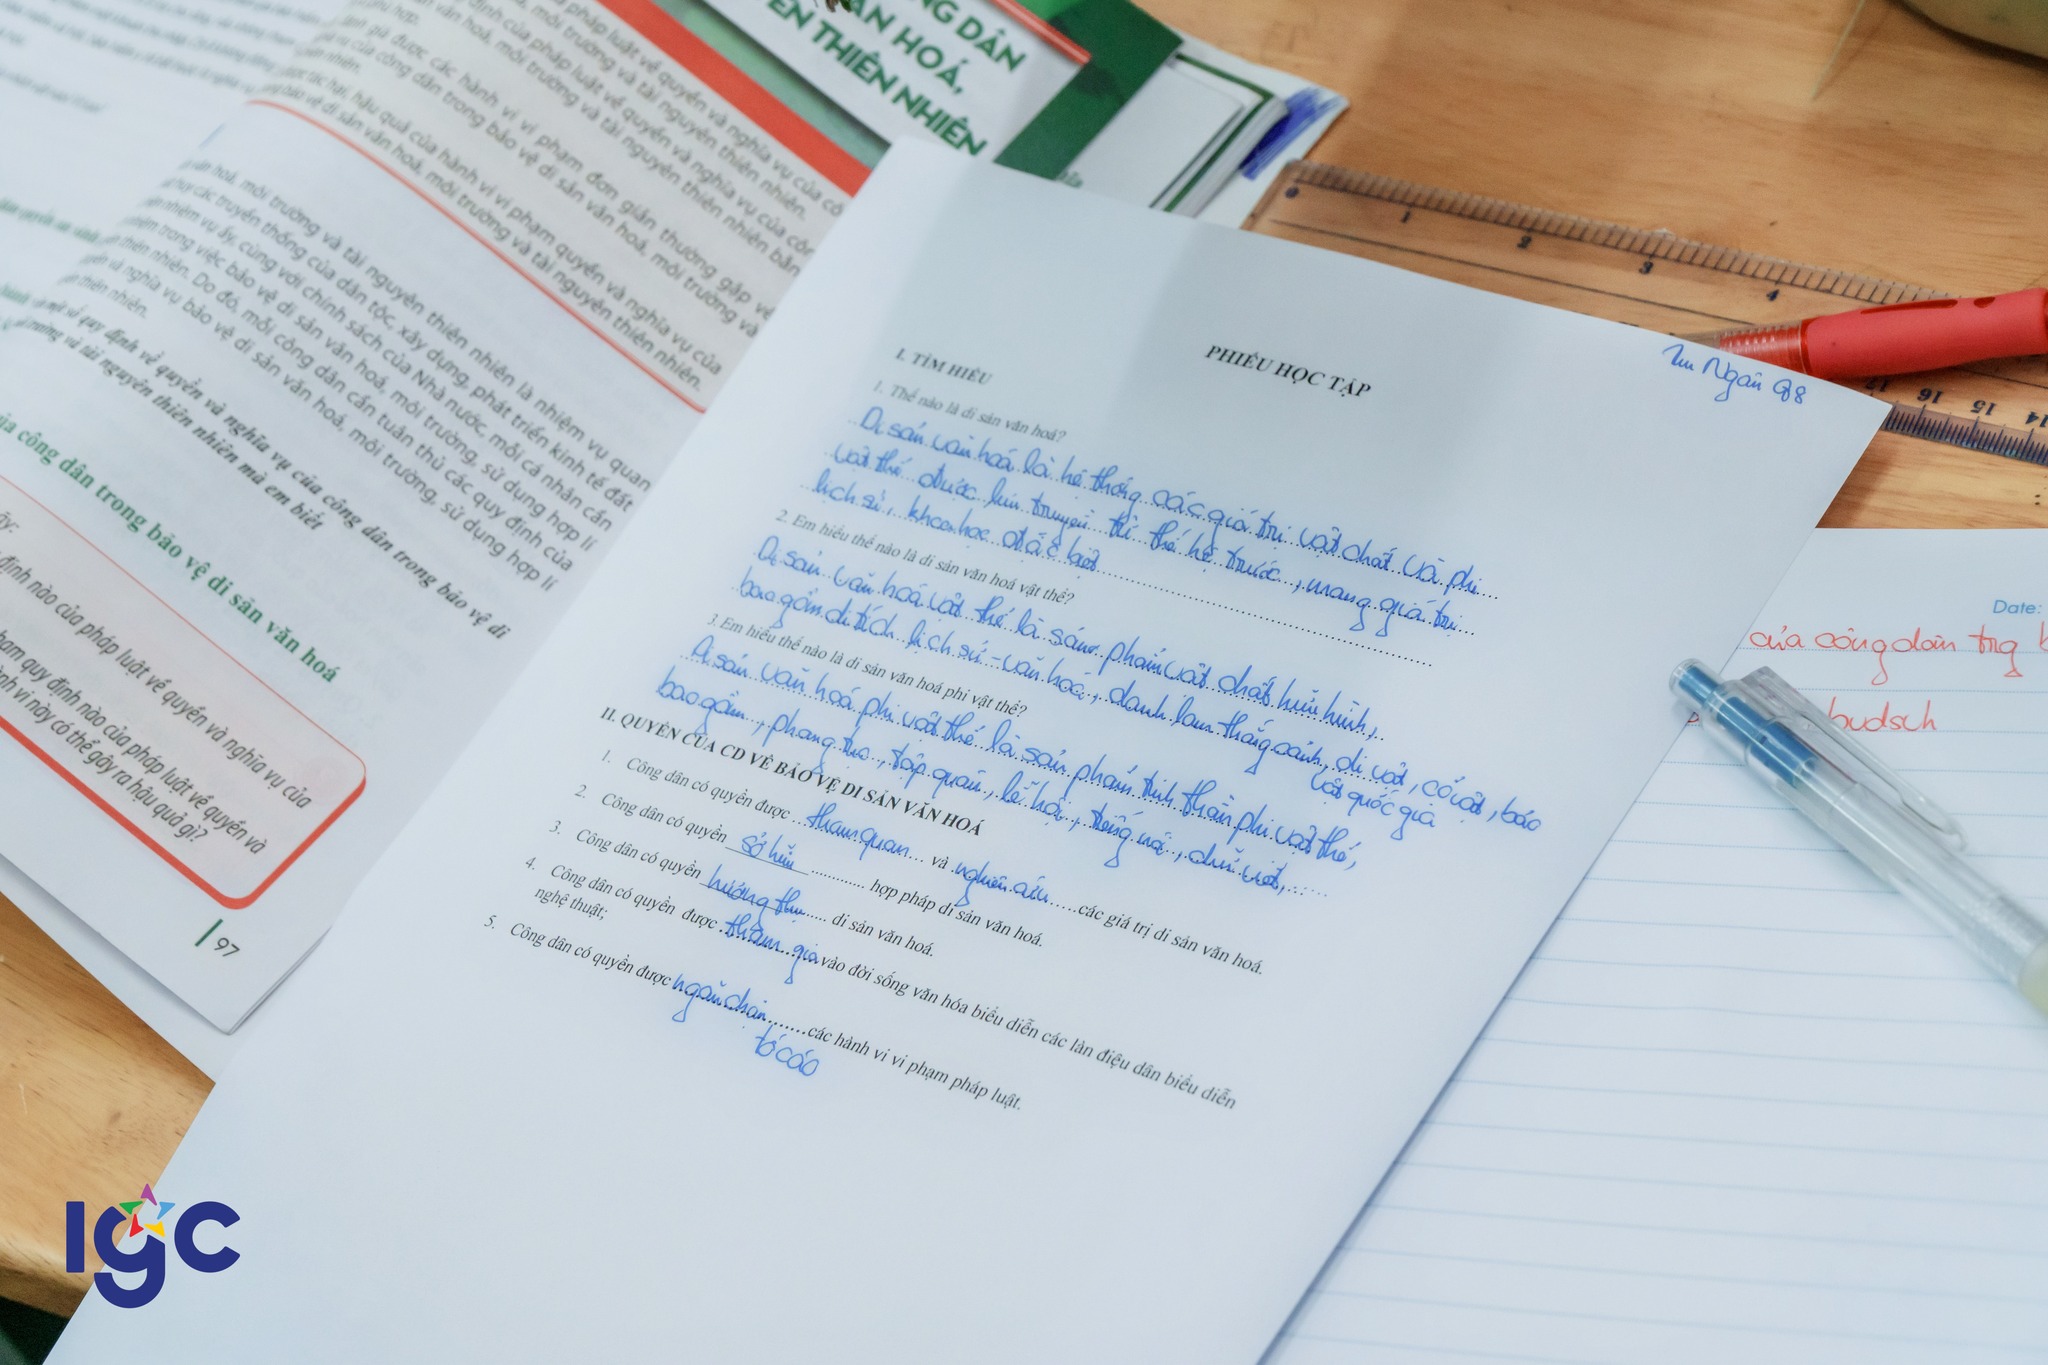 NG DÂN
ĂN HOÁ,
ÊN THIÊN NHIÊN
pháp luật về quyền và nghĩa vụ của cô
, môi trường và tài nguyên thiên nhiên.
định của pháp luật về quyền và nghĩa vụ của côn
văn hoá, môi trường và tài nguyên thiên nhiên bằn
phù hợp.
nh giá được các hành vi vi phạm đơn giản thường gặp về
vụ của công dân trong bảo vệ di sản văn hoá, môi trường và
nhiên.
được tác hại, hậu quả của hành vi vi phạm quyền và nghĩa vụ của
ng bảo vệ di sản văn hoá, môi trường và tài nguyên thiên nhiên.
văn hoá, môi trường và tài nguyên thiên nhiên là nhiệm vụ quan
huy các truyền thống của dân tộc, xây dựng, phát triển kinh tế đất
nhiệm vụ ấy, cùng với chính sách của Nhà nước, mỗi cá nhân cần
nhiệm trong việc bảo vệ di sản văn hoá, môi trường, sử dụng hợp lí
thiên nhiên. Do đó, mỗi công dân cần tuân thủ các quy định của
quyền và nghĩa vụ bảo vệ di sản văn hoá, môi trường, sử dụng hợp lí
thiên nhiên.
một số quy định về quyền và nghĩa vụ của công dân trong bảo vệ di
môi trường và tài nguyên thiên nhiên mà em biết
của công dân trong bảo vệ di sản văn hoá
ây:
định nào của pháp luật về quyền và nghĩa vụ của
phạm quy định nào của pháp luật về quyền và
hành vi này có thể gây ra hậu quả gì?
97
Ngân 9/8
PHIẾU HỌC TẬP
I. TÌM HIỂU
1. Thế nào là di sản văn hoá?
Di sản văn hoá là hệ thống các giá trị vật chất và phi
vật thể được lưu truyền từ thế hệ trước, mang giá trị
lịch sử, khoa học đặc biệt
2. Em hiểu thế nào là di sản văn hoá vật thể?
Di sản văn hoá vật thể là sản phẩm vật chất hữu hình,
bao gồm di tích lịch sử - văn hoá, danh lam thắng cảnh, di vật, cổ vật, bảo
vật quốc gia
3. Em hiểu thế nào là di sản văn hoá phi vật thể?
Di sản văn hoá phi vật thể là sản phẩm tinh thần phi vật thể,
bao gồm, phong tục, tập quán, lễ hội, tiếng nói, chữ viết,......
II. QUYỀN CỦA CD VỀ BẢO VỆ DI SẢN VĂN HOÁ
1. Công dân có quyền được ...tham quan... và nghiên cứu.....các giá trị di sản văn hoá.
2. Công dân có quyền sở hữu............ hợp pháp di sản văn hoá.
3. Công dân có quyền hưởng thụ..... di sản văn hoá.
4. Công dân có quyền được tham gia vào đời sống văn hóa biểu diễn các làn điệu dân biểu diễn
nghệ thuật;
5. Công dân có quyền được ngăn chặn.......các hành vi vi phạm pháp luật.
tố cáo
0 1 2 3 4
17 16 15 14
Date:
của công dân trg
budsch
IGC